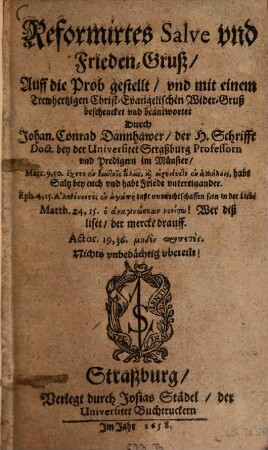 Reformirtes Salve vnd
Frieden-Gruß/
Auff die Prob gestellt/ vnd mit einem
Trewhertzigen Christ-Evangelischen Wider-Gruß
beschencket vnd beäntwortet
Durch
Johan. Conrad Dannhawer/ der H. Schrifft
Doct. bey der Universitet Straßburg Professorn
vnd Predigern im Münster/
Marc. 9,50. ἔχετε ἐν ἑαυτοῖς ἅλας, καὶ εἰρηνεύετε ἐν ἀλλήλοις, habt
Saltz bey euch vnd habt Friede vntereinander.
Eph. 4, 15. Ἀληθεύοντες ἐν ἀγάπῃ laßt vns rechtschaffen sein in der Liebe
Matth. 24, 15. ὁ ἀναγινώσκων νοείτω! Wer diß
liset/ der mercke drauff.
Actor. 19, 36. μηδὲν προπετές.
Nichts vnbedächtig vbereilt!
Straßburg/
Verlegt durch Josias Städel/ der
Universitet Buchtruckern
Im Jahr 1658.